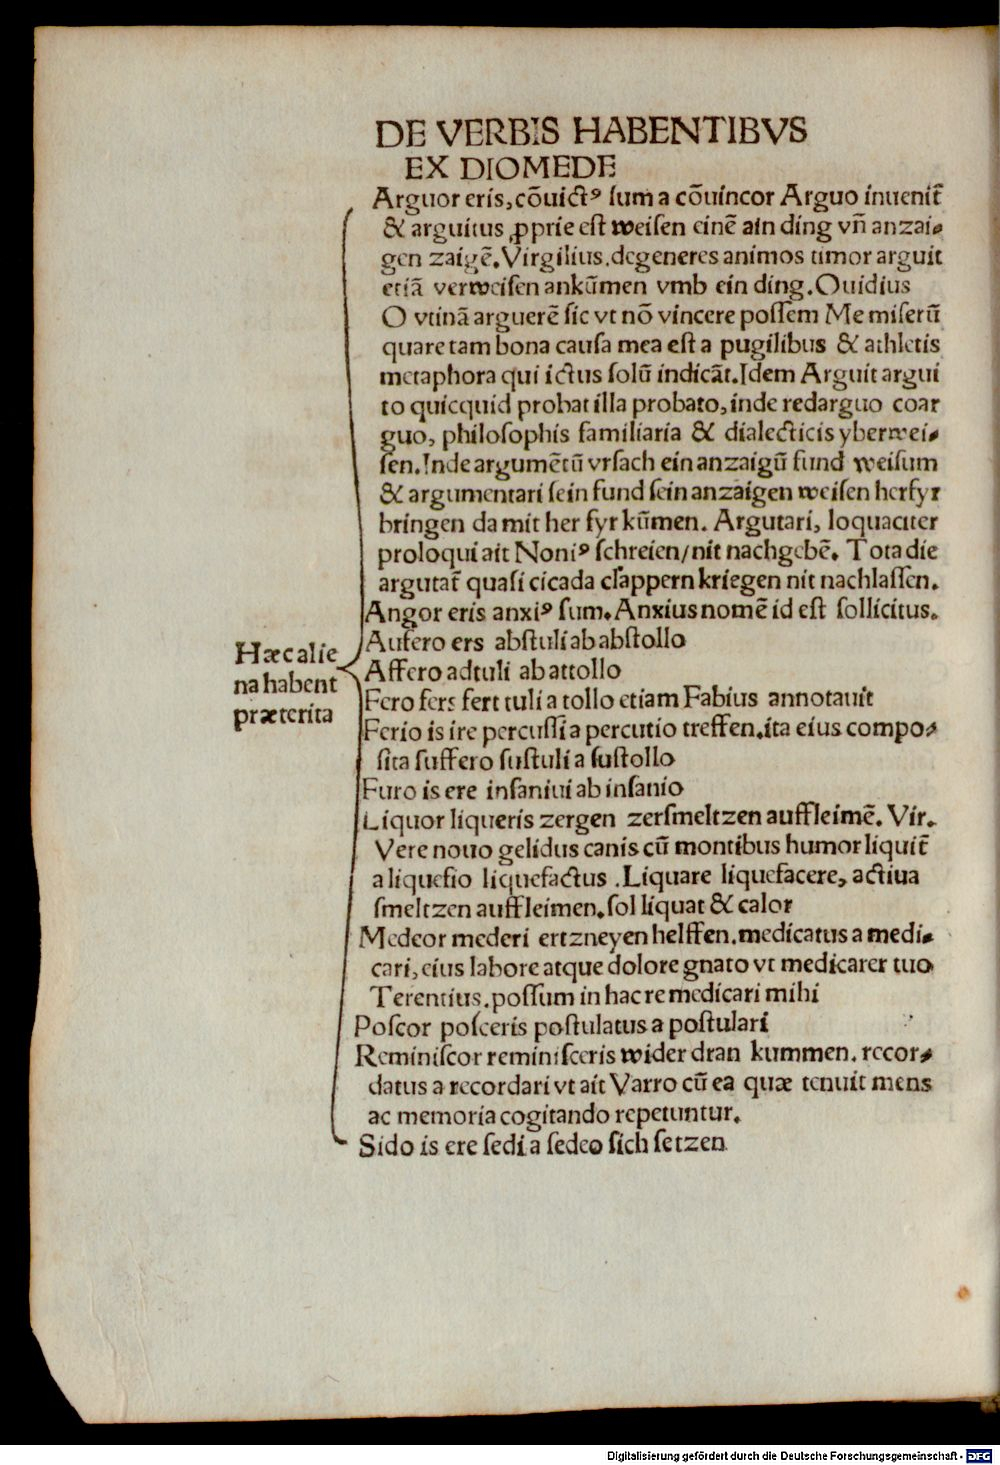 DE VERBIS HABENTIBVS
EX DIOMEDE
Arguor eris, cōuictꝰ ſum a cōuincor Arguo inuenit̄
& arguitus ꝓprie eſt weiſen einē ain ding vn̄ anzai⸗
gen zaigē. Virgilius. degeneres animos timor arguit
etiā verweiſen ankūmen vmb ein ding. Ouidius
O vtinā arguerē ſic vt nō vincere poſſem Me miſerū
quare tam bona cauſa mea eſt a pugilibus & athletis
metaphora qui ictus ſolū indicāt. Idem Arguit argui
to quicquid probat illa probato, inde redarguo coar
guo, philoſophis familiaria & dialecticis yberwei⸗
ſen. Inde argumētū vrſach ein anzaigū fund weiſum
& argumentari ſein fund ſein anzaigen weiſen herfyr
bringen da mit her fyr kūmen. Argutari, loquaciter
proloqui ait Noniꝰ ſchreien/nit nachgebē. Tota die
argutat̄ quaſi cicada clappern kriegen nit nachlaſſen.
Angor eris anxiꝰ ſum. Anxius nomē id eſt ſollicitus.
Aufero ers abſtuli ab abſtollo
Hæc alie
na habent
præterita
Affero adtuli ab attollo
Fero fers fert tuli a tollo etiam Fabius annotauit
Ferio is ire percuſſi a percutio treffen. ita eius compo⸗
ſita ſuffero ſuſtuli a ſuſtollo
Furo is ere inſaniui ab inſanio
Liquor liqueris zergen zerſmeltzen auffleimē. Vir.
Vere nouo gelidus canis cū montibus humor liquit̄
a liquefio liquefactus. Liquare liquefacere, actiua
ſmeltzen auffleimen. ſol liquat & calor
Medeor mederi ertzneyen helffen. medicatus a medi⸗
cari, eius labore atque dolore gnato vt medicarer tuo
Terentius. poſſum in hac re medicari mihi
Poſcor poſceris poſtulatus a poſtulari
Reminiſcor reminiſceris wider dran kummen. recor⸗
datus a recordari vt ait Varro cū ea quæ tenuit mens
ac memoria cogitando repetuntur.
Sido is ere ſedi a ſedeo ſich ſetzen
Digitalisierung gefördert durch die Deutsche Forschungsgemeinschaft - DFG